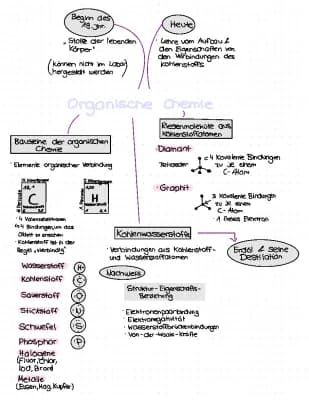 Beginn des
19. Jhr.
Heute
„Stoffe der lebenden
Körper"
(können nicht im Labor
hergestellt werden)
Lehre vom Aufbau &
den Eigenschaften von
den Verbindungen des
Kohlenstoffs
Organische Chemie
Bausteine der organischen
Chemie
Elemente organischer Verbindung
C
H
4 Valenzelektronen
4 Bindungen, um das
Oktett zu erreichen
Kohlenstoff ist in der
Regel „vierbindig"
Wasserstoff H
Kohlenstoff C
Sauerstoff O
Stickstoff N
Schwefel S
Phosphor P
Halogene
(Fluor, Chlor,
Iod, Brom)
Metalle
(Eisen, Mag, Kupfer)
Riesenmoleküle aus
Kohlenstoffatomen
Diamant
Tetraeder
4 Kovalente Bindungen
zu je einem
C-Atom
Graphit
3 Kovalente Bindungen
zu je einem
C-Atom
1 freies Elektron
Kohlenwasserstoffe
Verbindungen aus Kohlenstoff-
und Wasserstoffatomen
Erdöl & seine
Destillation
Nachweise
Struktur-Eigenschafts-
Beziehung
Elektronenpaarbindung
Elektronegativität
Wasserstoffbrückenbindungen
Van-der-Waals-Kräfte